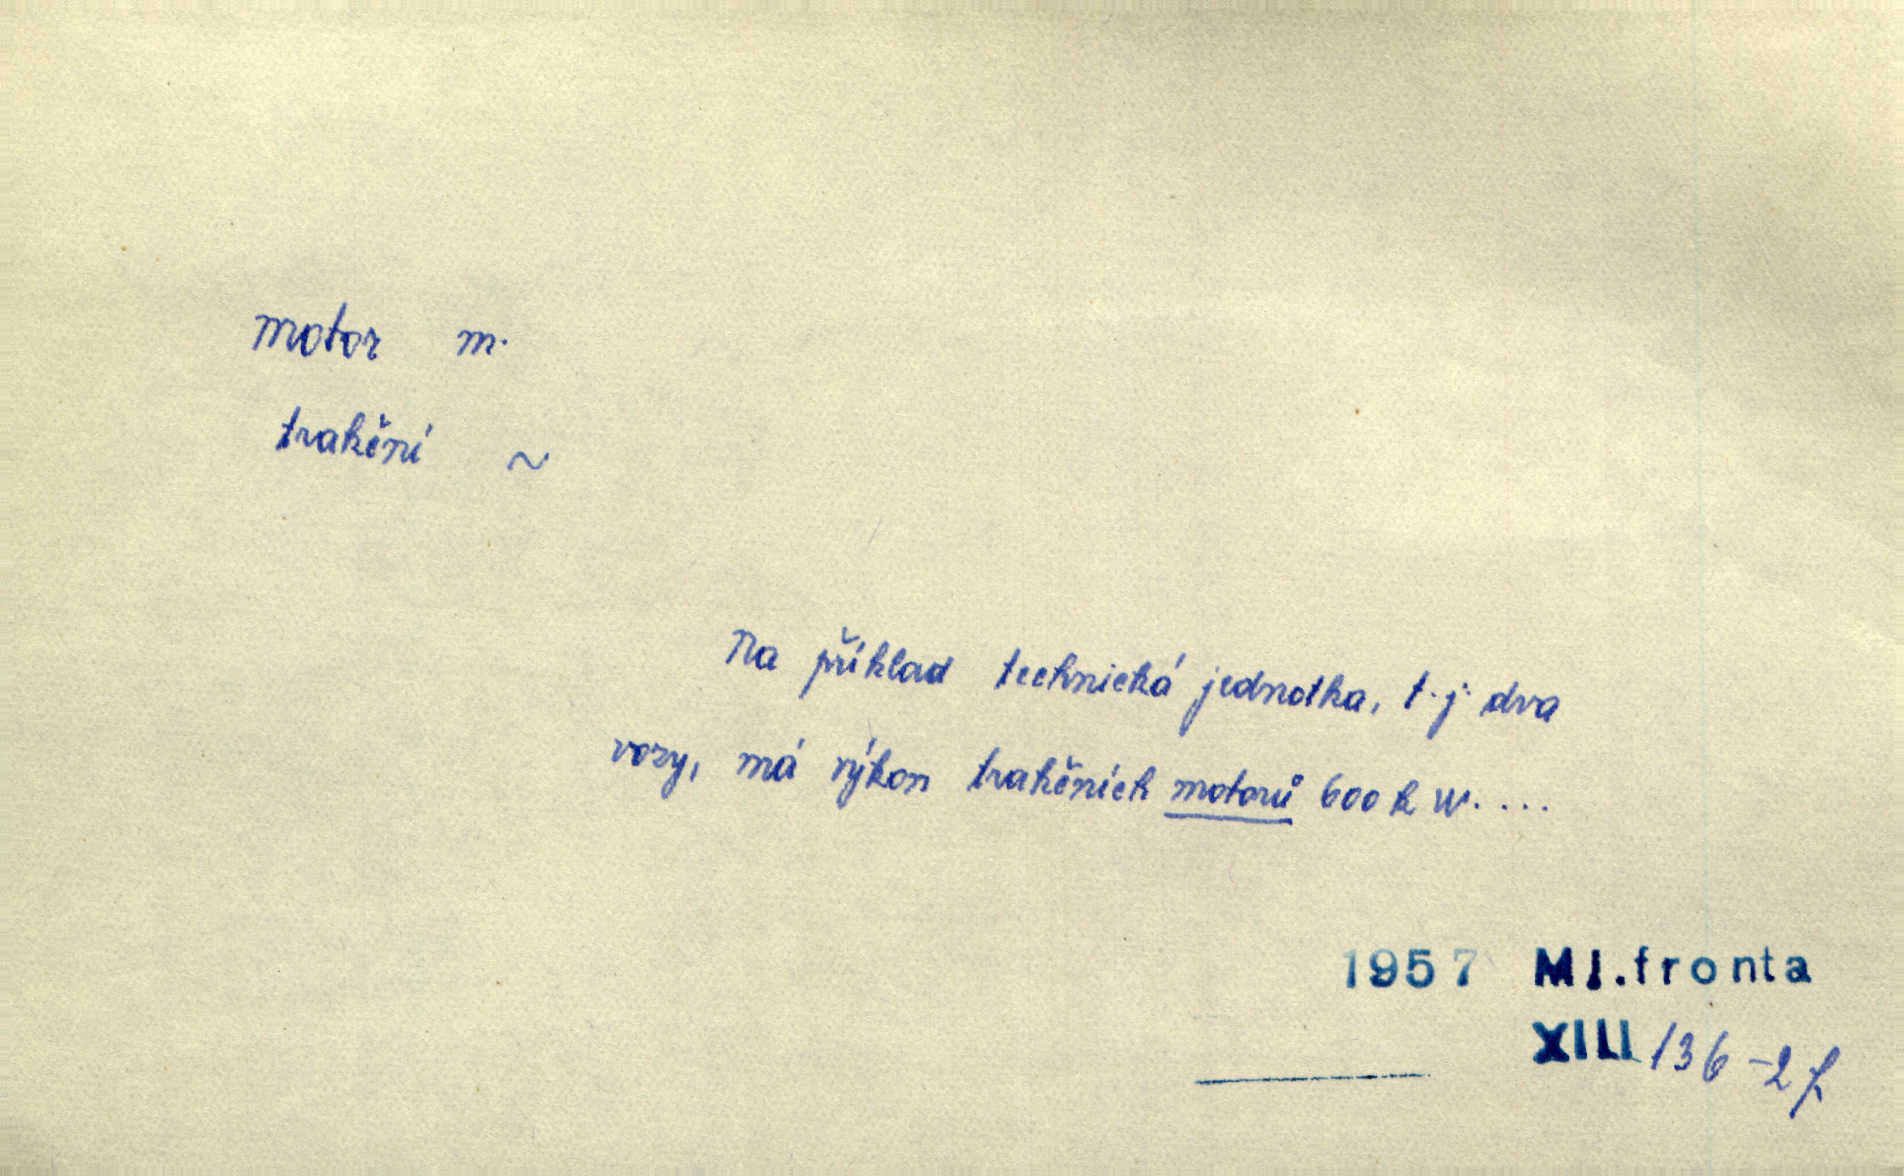 motor m.
trakční ~
Na příklad technická jednotka, t.j. dva
vozy, má výkon trakčních motorů 600 k W. . . .
1957 Ml.fronta
XIII/136-2